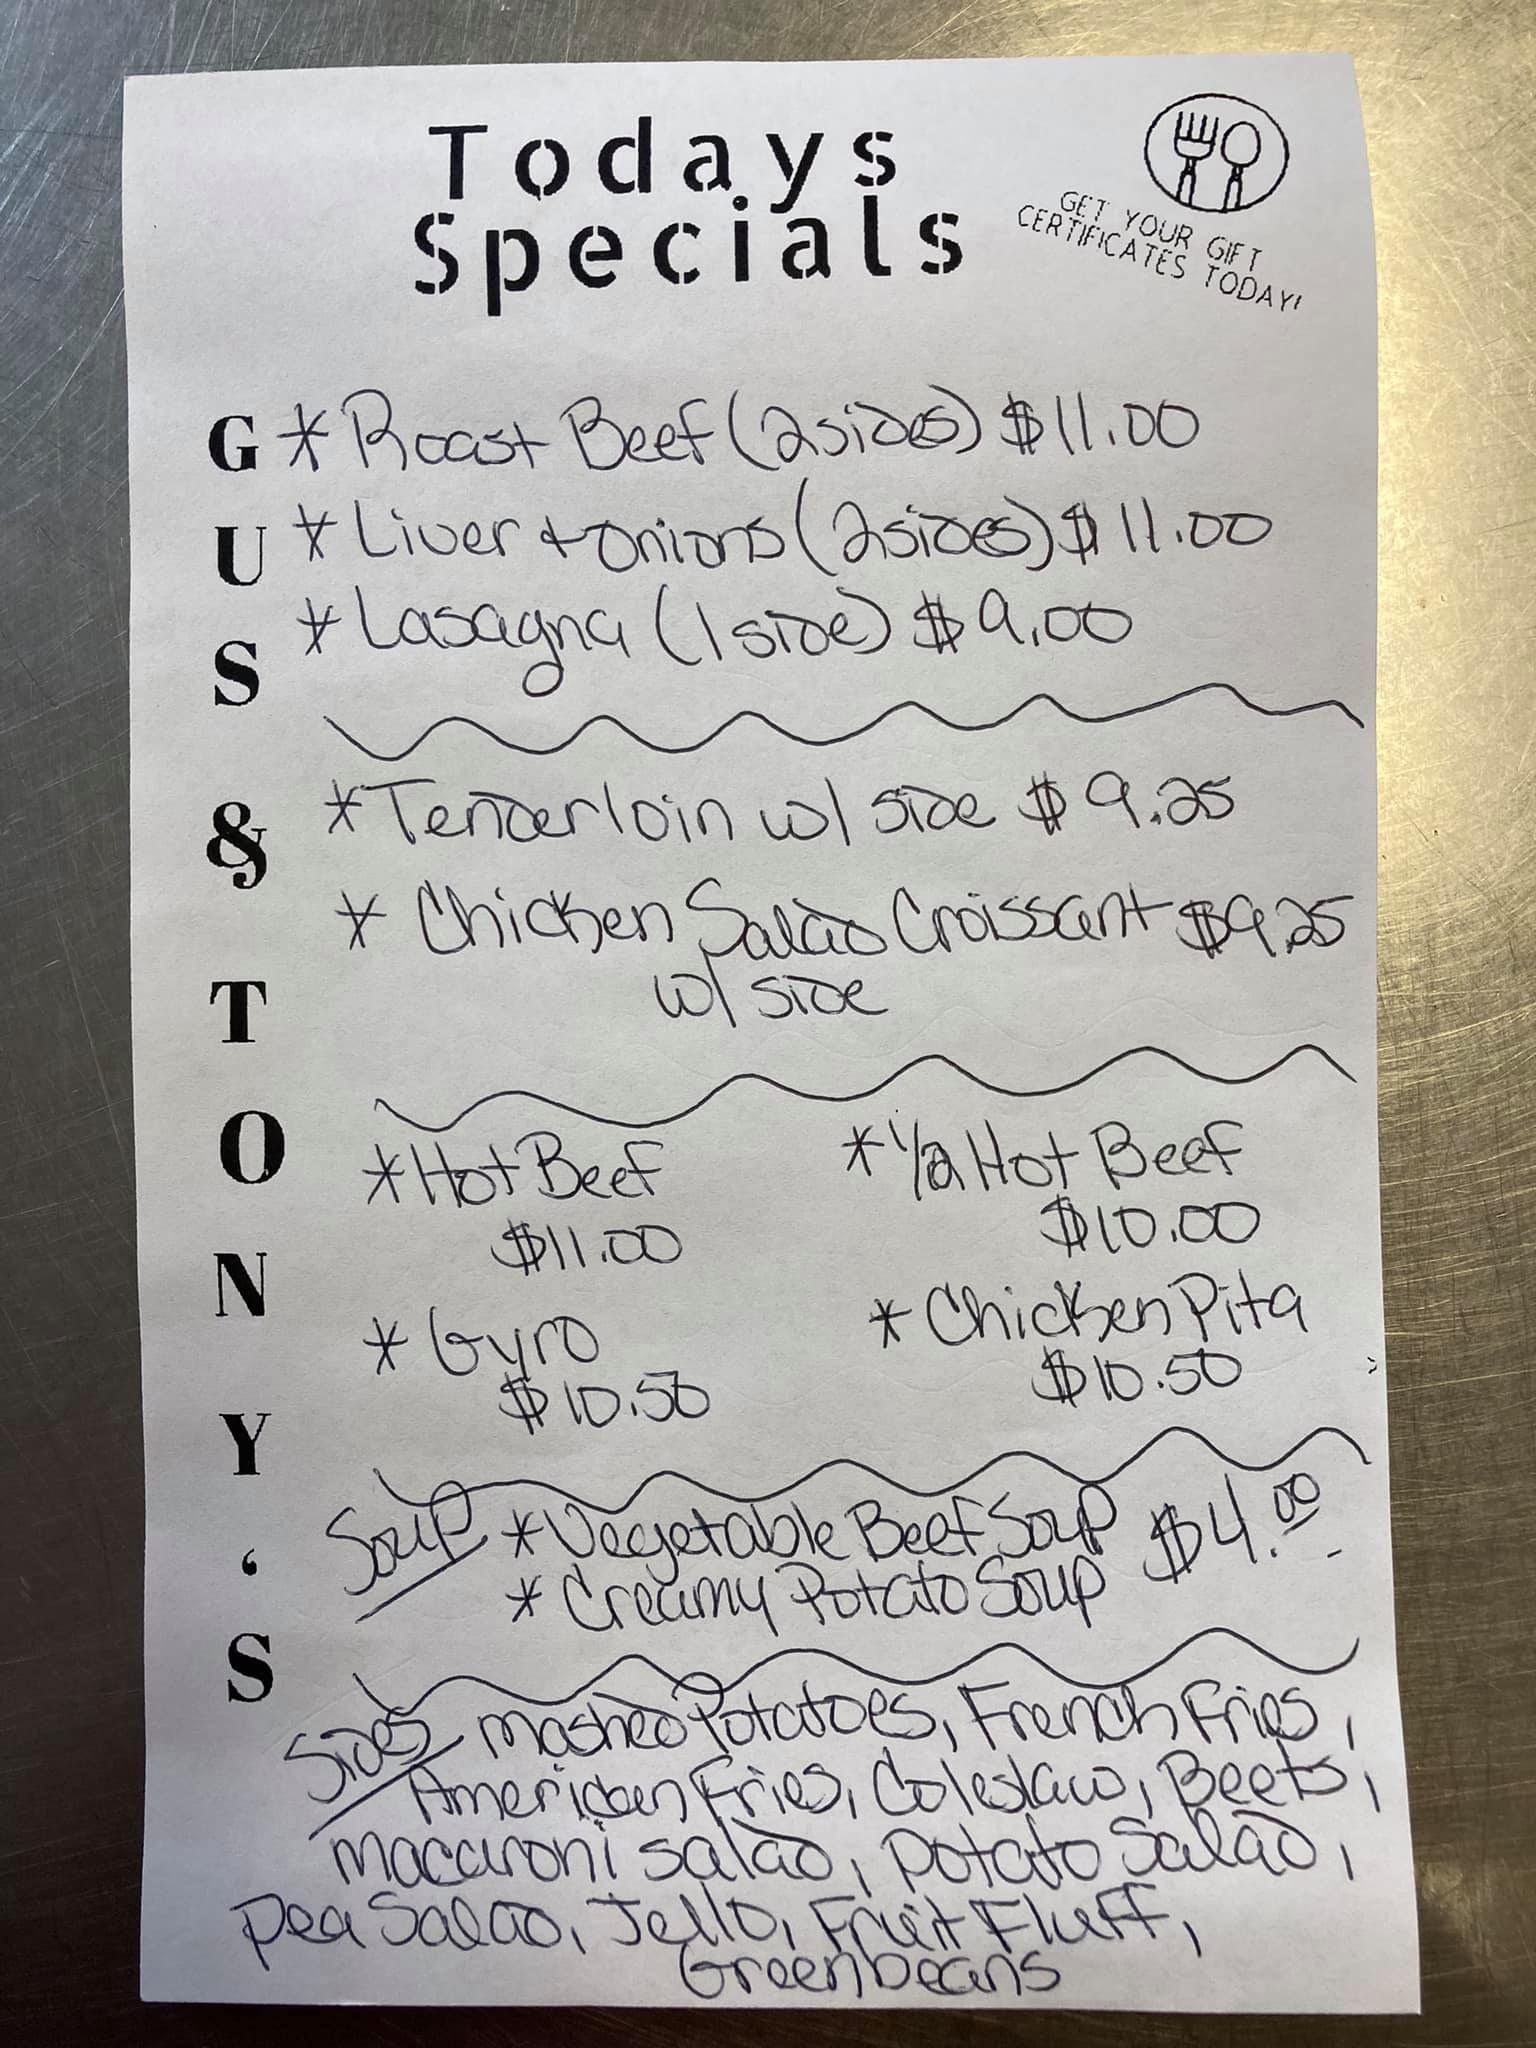 Todays
Specials
GET YOUR GIFT
CERTIFICATES TODAY!
GUS & TONY'S
* Roast Beef (2 sides) $11.00
* Liver + Onions (2 sides) $11.00
* Lasagna (1 side) $9.00
* Tenderloin w/ side $9.25
* Chicken Salad Croissant $9.25
w/ side
* Hot Beef
$11.00
* 1/2 Hot Beef
$10.00
* Gyro
$10.50
* Chicken Pita
$10.50
Soup * Vegetable Beef Soup $4.00
* Creamy Potato Soup
Sides Mashed Potatoes, French Fries,
American Fries, Coleslaw, Beets,
Macaroni Salad, Potato Salad,
Pea Salad, Jello, Fruit Fluff,
Greenbeans